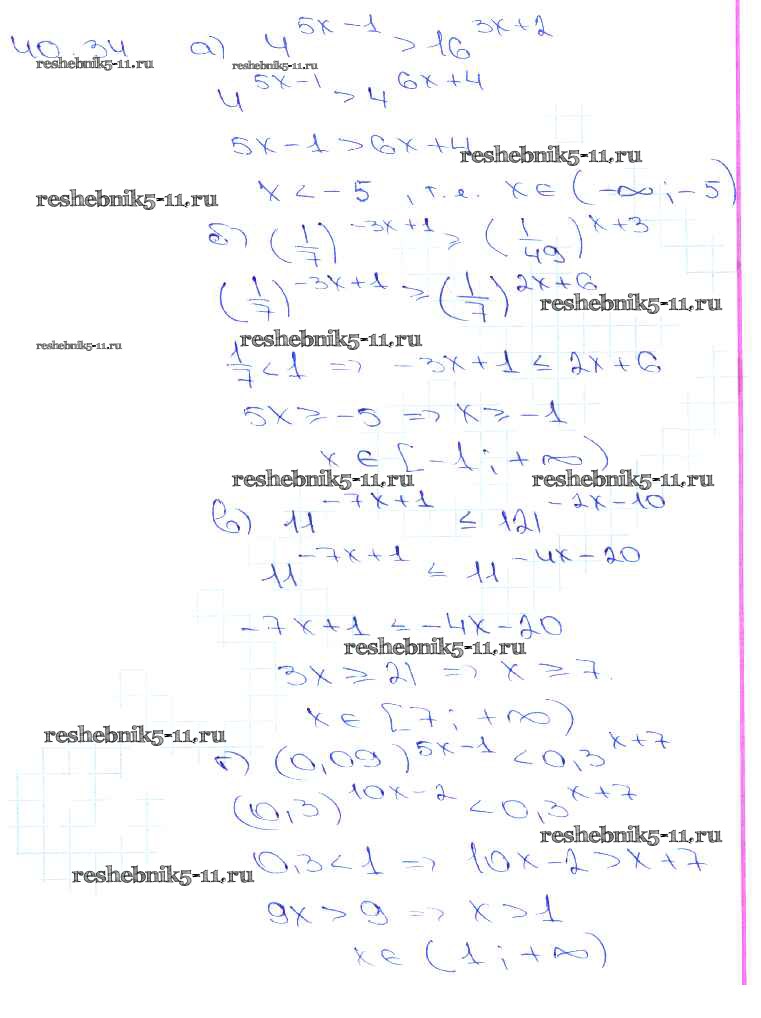 40.34 а) 4^(5x-1) > 16^(3x+2)
reshebnik5-11.ru reshebnik5-11.ru
4^(5x-1) > 4^(6x+4)
5x-1 > 6x+4
reshebnik5-11.ru
x < -5, т.е. x ∈ (-∞; -5)
reshebnik5-11.ru
б) (1/7)^(-3x+1) ≥ (1/49)^(x+3)
(1/7)^(-3x+1) ≥ (1/7)^(2x+6)
reshebnik5-11.ru
reshebnik5-11.ru reshebnik5-11.ru
1/7 < 1 => -3x+1 ≤ 2x+6
5x ≥ -5 => x ≥ -1
x ∈ [-1; +∞)
reshebnik5-11.ru reshebnik5-11.ru
в) 11^(-7x+1) ≤ 121^(-2x-10)
11^(-7x+1) ≤ 11^(-4x-20)
-7x+1 ≤ -4x-20
reshebnik5-11.ru
3x ≥ 21 => x ≥ 7.
x ∈ [7; +∞)
reshebnik5-11.ru
г) (0,09)^(5x-1) < 0,3^(x+7)
(0,3)^(10x-2) < 0,3^(x+7)
reshebnik5-11.ru
0,3 < 1 => 10x-2 > x+7
reshebnik5-11.ru
9x > 9 => x > 1
x ∈ (1; +∞)